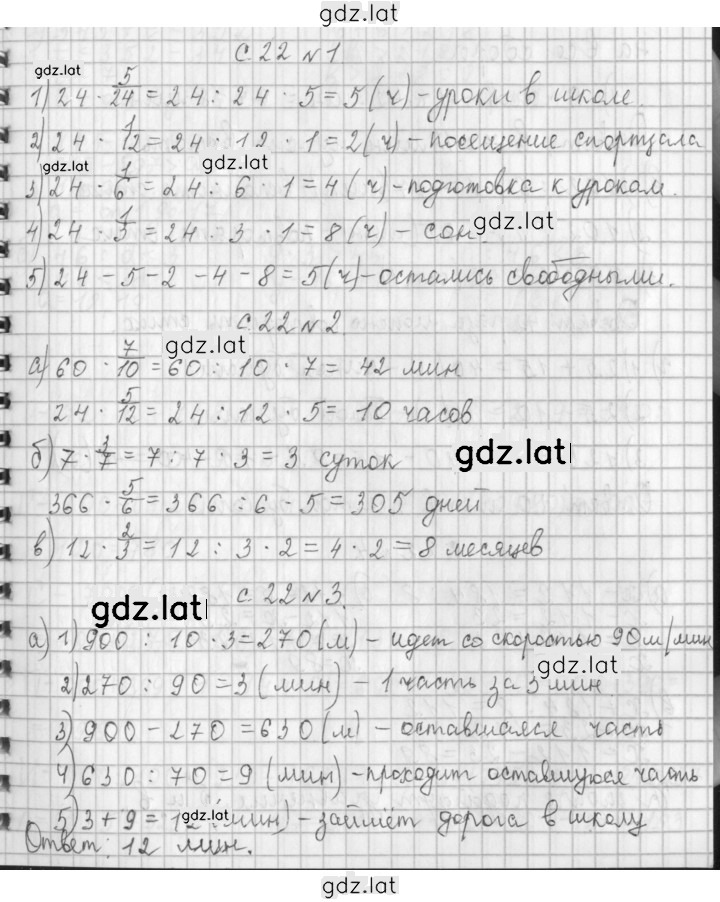 gdz.lat
с. 22 № 1
gdz.lat
1) 24 · 5/24 = 24 : 24 · 5 = 5 (ч) - уроки в школе.
2) 24 · 1/12 = 24 · 12 · 1 = 2 (ч) - посещение спортзала
gdz.lat gdz.lat
3) 24 · 1/6 = 24 : 6 · 1 = 4 (ч) - подготовка к урокам.
4) 24 · 1/3 = 24 · 3 · 1 = 8 (ч) - сон. gdz.lat
5) 24 - 5 - 2 - 4 - 8 = 5 (ч) - остались свободными.
с. 22 № 2.
gdz.lat
а) 60 · 7/10 = 60 : 10 · 7 = 42 мин
24 · 5/12 = 24 : 12 · 5 = 10 часов
б) 7 · 3/7 = 7 : 7 · 3 = 3 суток gdz.lat
366 · 5/6 = 366 : 6 · 5 = 305 дней
в) 12 · 2/3 = 12 : 3 · 2 = 4 · 2 = 8 месяцев
с. 22 № 3.
gdz.lat
а) 1) 900 : 10 · 3 = 270 (м) - идет со скоростью 90 м/мин
gdz.lat
2) 270 : 90 = 3 (мин) - 1 часть за 3 мин
3) 900 - 270 = 630 (м) - оставшаяся часть
4) 630 : 70 = 9 (мин) - проходит оставшуюся часть
5) 3 + 9 = 12 (мин) - займёт дорога в школу
gdz.lat
Ответ: 12 мин.
gdz.lat